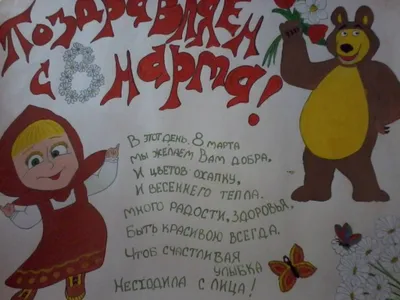 Поздравляем
с 8 марта!
В этот день 8 марта
мы желаем Вам добра,
и цветов охапку,
и весеннего тепла.
много радости, здоровья,
быть красивою всегда.
Чтоб счастливая
улыбка
несходила с лица!